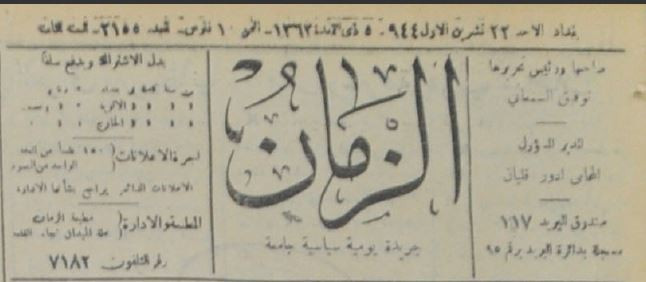 بغداد الاحد ٢٢ تشرين الاول ٩٤٤ - ٥ ذي القعدة ١٣٦٣ - الثمن ١٠ فلوس - العدد ٢١٥٥ - السنة
صاحبها ورئيس تحريرها
توفيق السمعاني
المدير المسؤول
المحامي ادور قليان
صندوق البريد ١١٧
مسجلة بدائرة البريد برقم ٩٥
الزمان
جريدة يومية سياسية جامعة
بدل الاشتراك ويدفع سلفا
اجرة الاعلانات
١٥٠ فلسا عن العقد
الواحد من العمود
الاعلانات يراجع بشأنها الادارة
المطبعة والادارة
مطبعة الزمان
رقم التلفون ٧١٨٢